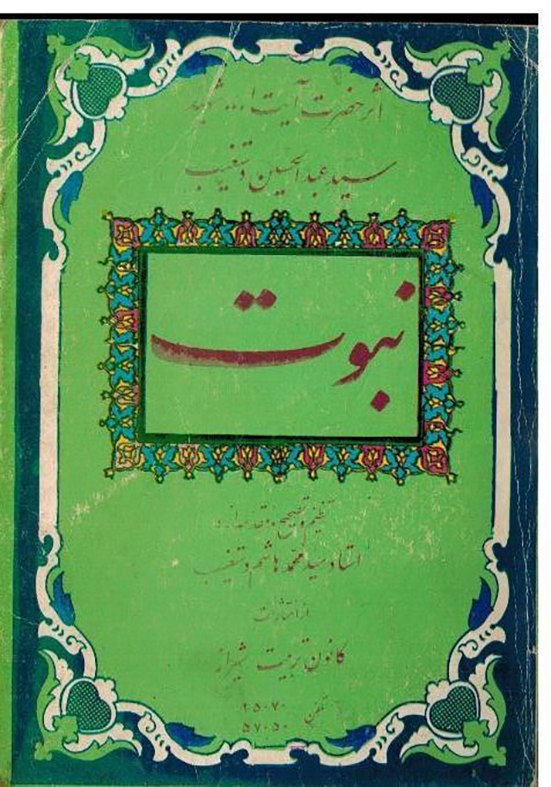 اثر حضرت آیت ا... شهید
سید عبدالحسین دستغیب
نبوت
تنظیم و تصحیح و مقدمه از :
استاد سید محمد هاشم دستغیب
از انتشارات
کانون تربیت شیراز
تلفن ۲۵۰۷۰
۵۷۰۵۰